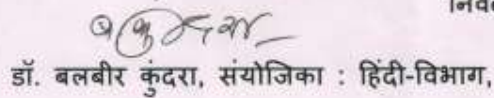 डॉ. बलबीर कुंदरा, संयोजिका : हिंदी-विभाग,